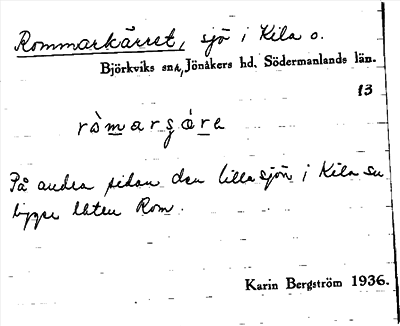 Rommarkärret, sjö i Kila o.
Björkviks snr, Jönåkers hd. Södermanlands län.
13
ròmargára
På andra sidan den lilla sjön i Kila sn
ligger Rom.
Karin Bergström 1936.